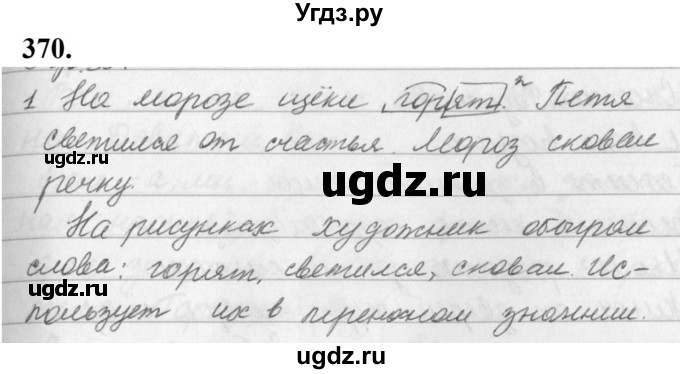 Угдз.ру
370.
1 На морозе щёки "горят". Петя
светился от счастья. Мороз сковал
речку.
На рисунках художник обыграл
слова: горят, светился, сковал. Ис-
пользует их в переносном значении.
ugdz.ru
ugdz.ru
ugdz.ru
ugdz.ru
ugdz.ru